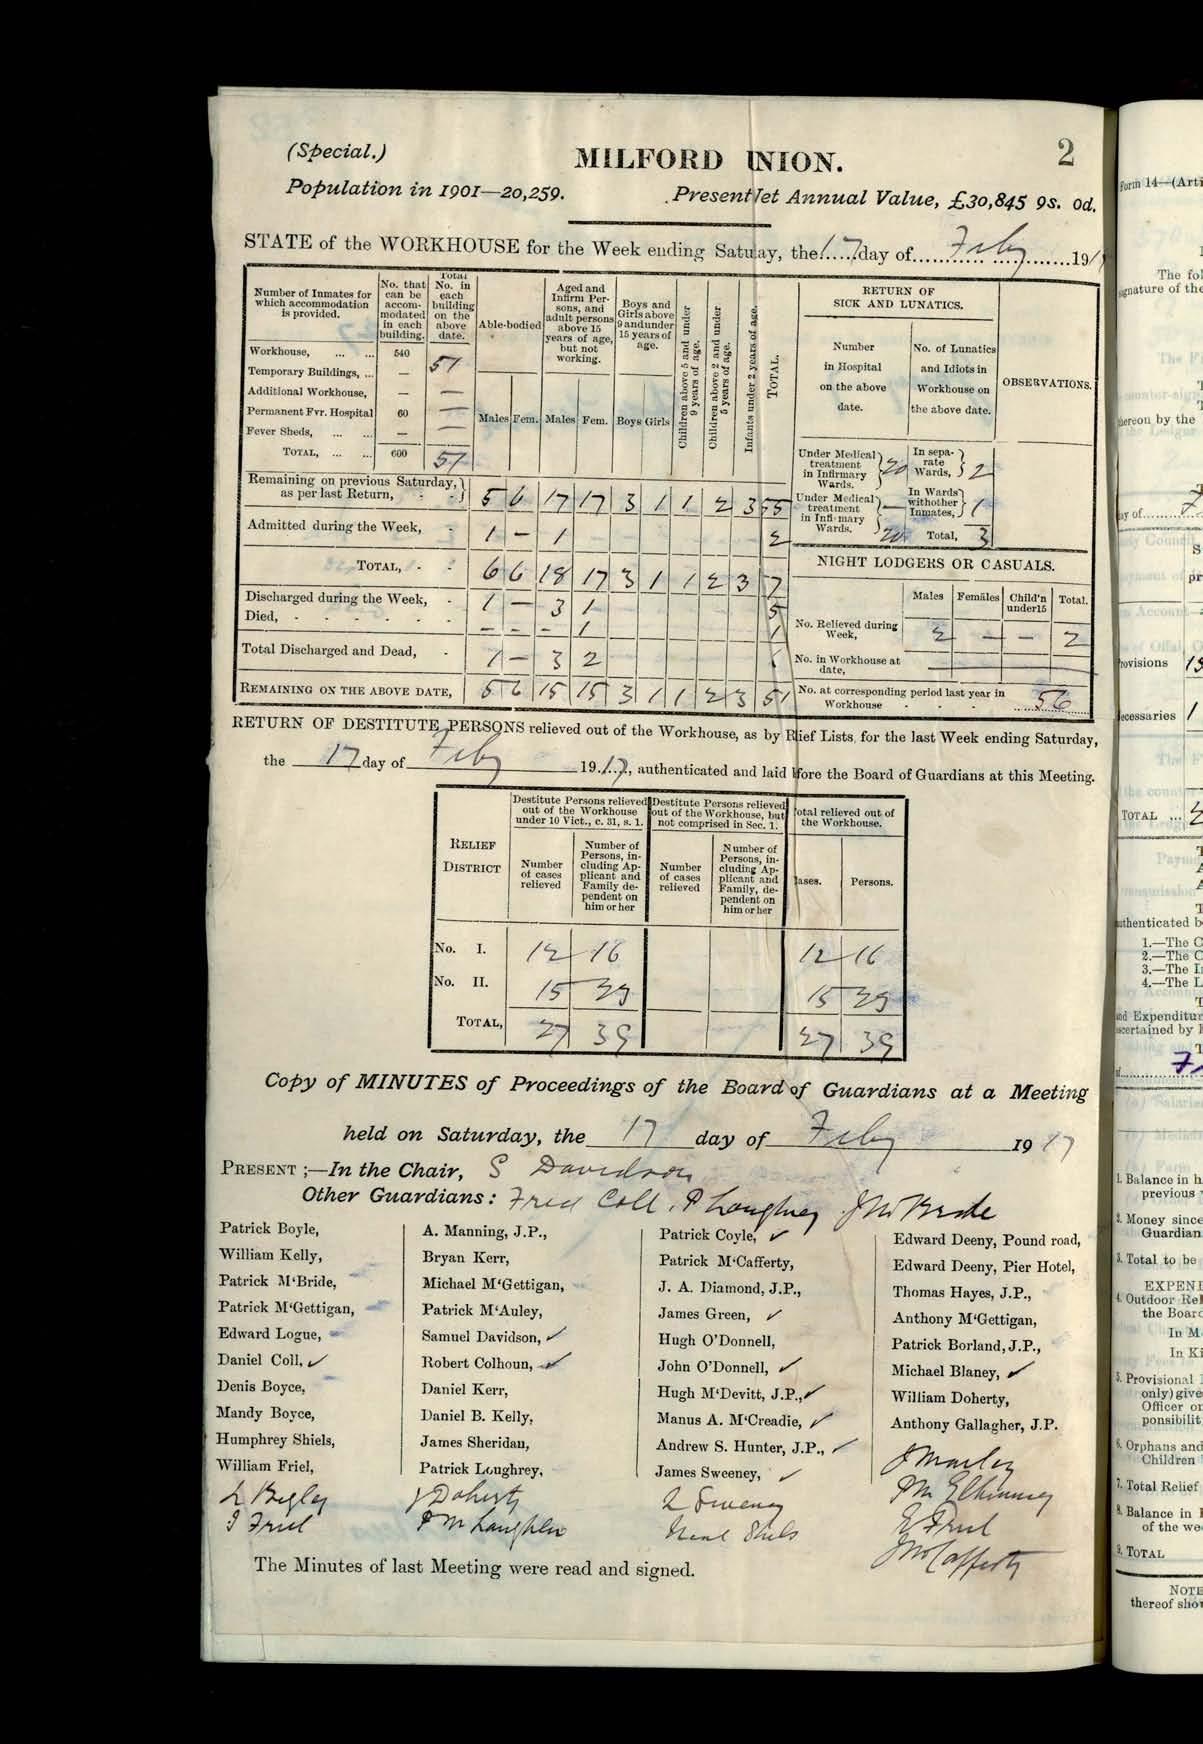 2
(Special.)
MILFORD UNION.
Population in 1901—20,259. Present Net Annual Value, £30,845 9s. 0d.
STATE of the WORKHOUSE for the Week ending Satu ay, the 17 day of Feby 191
Number of Inmates for which accommodation is provided.
No. that can be accommodated in each building.
Total No. in each building on the above date.
Able-bodied
Aged and Infirm Persons, and adult persons above 15 years of age, but not working.
Boys and Girls above 9 and under 15 years of age.
Children above 5 and under 9 years of age.
Children above 2 and under 5 years of age.
Infants under 2 years of age.
TOTAL.
Males Fem. Males Fem. Boys Girls
Workhouse, ... ... 540 51
Temporary Buildings, ... —
Additional Workhouse, — —
Permanent Fvr. Hospital 60 —
Fever Sheds, ... ... — —
TOTAL, ... ... 600 51
Remaining on previous Saturday, as per last Return, - - 5 6 17 17 3 1 1 2 3 55
Admitted during the Week, - 1 — 1 - - - - - - 2
TOTAL, - - 6 6 18 17 3 1 1 2 3 7
Discharged during the Week, - 1 — 3 1 5
Died, - - - - - - - - - 1 1
Total Discharged and Dead, - 1 — 3 2
REMAINING ON THE ABOVE DATE, 5 6 15 15 3 1 1 2 3 51
RETURN OF SICK AND LUNATICS.
Number in Hospital on the above date.
No. of Lunatics and Idiots in Workhouse on the above date.
OBSERVATIONS.
Under Medical treatment in Infirmary Wards. 20 In separate Wards, 2
Under Medical treatment in Infirmary Wards. — In Wards with other Inmates, 1
20 Total, 3
NIGHT LODGERS OR CASUALS.
Males Females Child'n under 15 Total.
No. Relieved during Week, 2 — — 2
No. in Workhouse at date,
No. at corresponding period last year in Workhouse - - - 56
RETURN OF DESTITUTE PERSONS relieved out of the Workhouse, as by R lief Lists for the last Week ending Saturday,
the 17 day of Feby 1917, authenticated and laid before the Board of Guardians at this Meeting.
RELIEF DISTRICT
Destitute Persons relieved out of the Workhouse under 10 Vict., c. 31, s. 1.
Destitute Persons relieved out of the Workhouse, but not comprised in Sec. 1.
Total relieved out of the Workhouse.
Number of cases relieved
Number of Persons, including Applicant and Family dependent on him or her
Number of cases relieved
Number of Persons, including Applicant and Family, dependent on him or her
Cases. Persons.
No. I. 12 16 12 16
No. II. 15 23 15 23
TOTAL, 27 39 27 39
Copy of MINUTES of Proceedings of the Board of Guardians at a Meeting
held on Saturday, the 17 day of Feby 1917
PRESENT ;—In the Chair, S Davidson
Other Guardians: Fred Coll, P Loughrey J McBride
Patrick Boyle,
William Kelly,
Patrick M'Bride,
Patrick M'Gettigan,
Edward Logue,
Daniel Coll, ✓
Denis Boyce,
Mandy Boyce,
Humphrey Shiels,
William Friel,
A. Manning, J.P.,
Bryan Kerr,
Michael M'Gettigan,
Patrick M'Auley,
Samuel Davidson, ✓
Robert Colhoun, ✓
Daniel Kerr,
Daniel B. Kelly,
James Sheridan,
Patrick Loughrey,
Patrick Coyle, ✓
Patrick M'Cafferty,
J. A. Diamond, J.P.,
James Green, ✓
Hugh O'Donnell,
John O'Donnell, ✓
Hugh M'Devitt, J.P., ✓
Manus A. M'Creadie, ✓
Andrew S. Hunter, J.P., ✓
James Sweeney, ✓
Edward Deeny, Pound road,
Edward Deeny, Pier Hotel,
Thomas Hayes, J.P.,
Anthony M'Gettigan,
Patrick Borland, J.P.,
Michael Blaney, ✓
William Doherty,
Anthony Gallagher, J.P.
L Begley J Doherty L Sweeney J Marley
J Friel P McLaughlin Neal Shiels P McElhinney
E Friel
J McCafferty
The Minutes of last Meeting were read and signed.